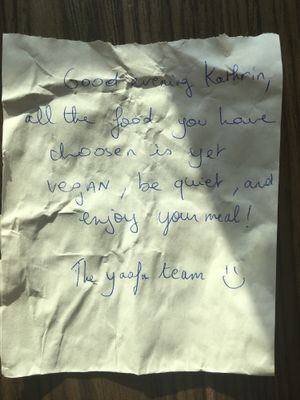 Good evening Kathrin,
all the food you have
choosen is yet
vegan, be quiet, and
enjoy your meal!
The yaafa team :)